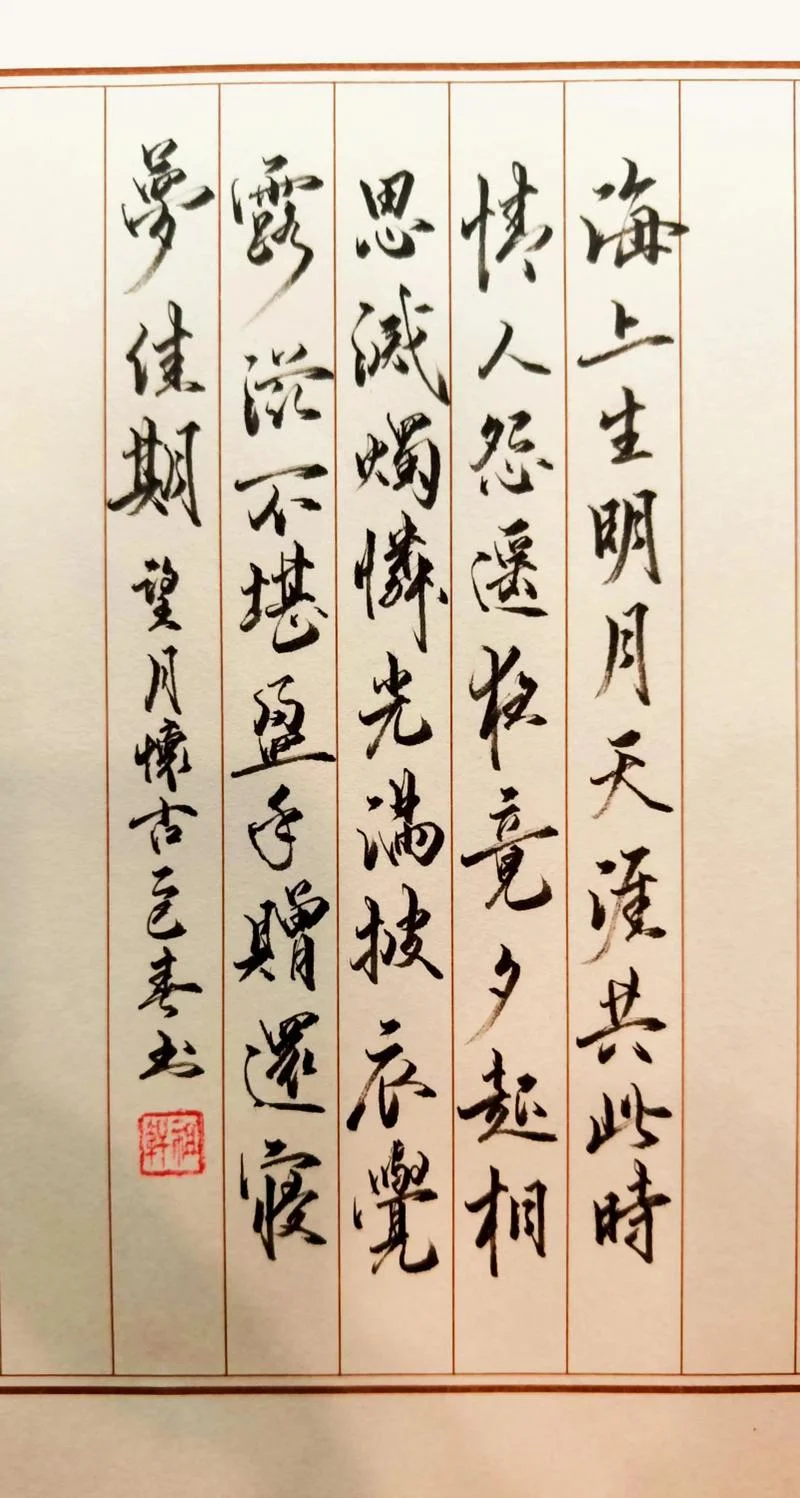 海上生明月天涯共此時
情人怨遥夜竟夕起相
思滅燭憐光滿披衣覺
露滋不堪盈手贈還寢
夢佳期望月懷古春书